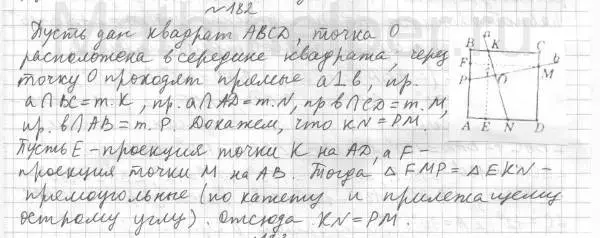 ~182
Пусть дан квадрат ABCD, точка O
расположена в середине квадрата, через
точку O проходят прямые a⊥b, пр.
a∩BC=т.K, пр. a∩AD=т.N, пр b∩CD=т.M,
пр. b∩AB=т.P. Докажем, что KN=PM.
Пусть E-проекция точки K на AD, а F-
проекция точки M на AB. Тогда △FMP=△EKN-
прямоугольные (по катету и прилежащему
острому углу). Отсюда KN=PM.
a
B K C
F b
M
P O
A E N D